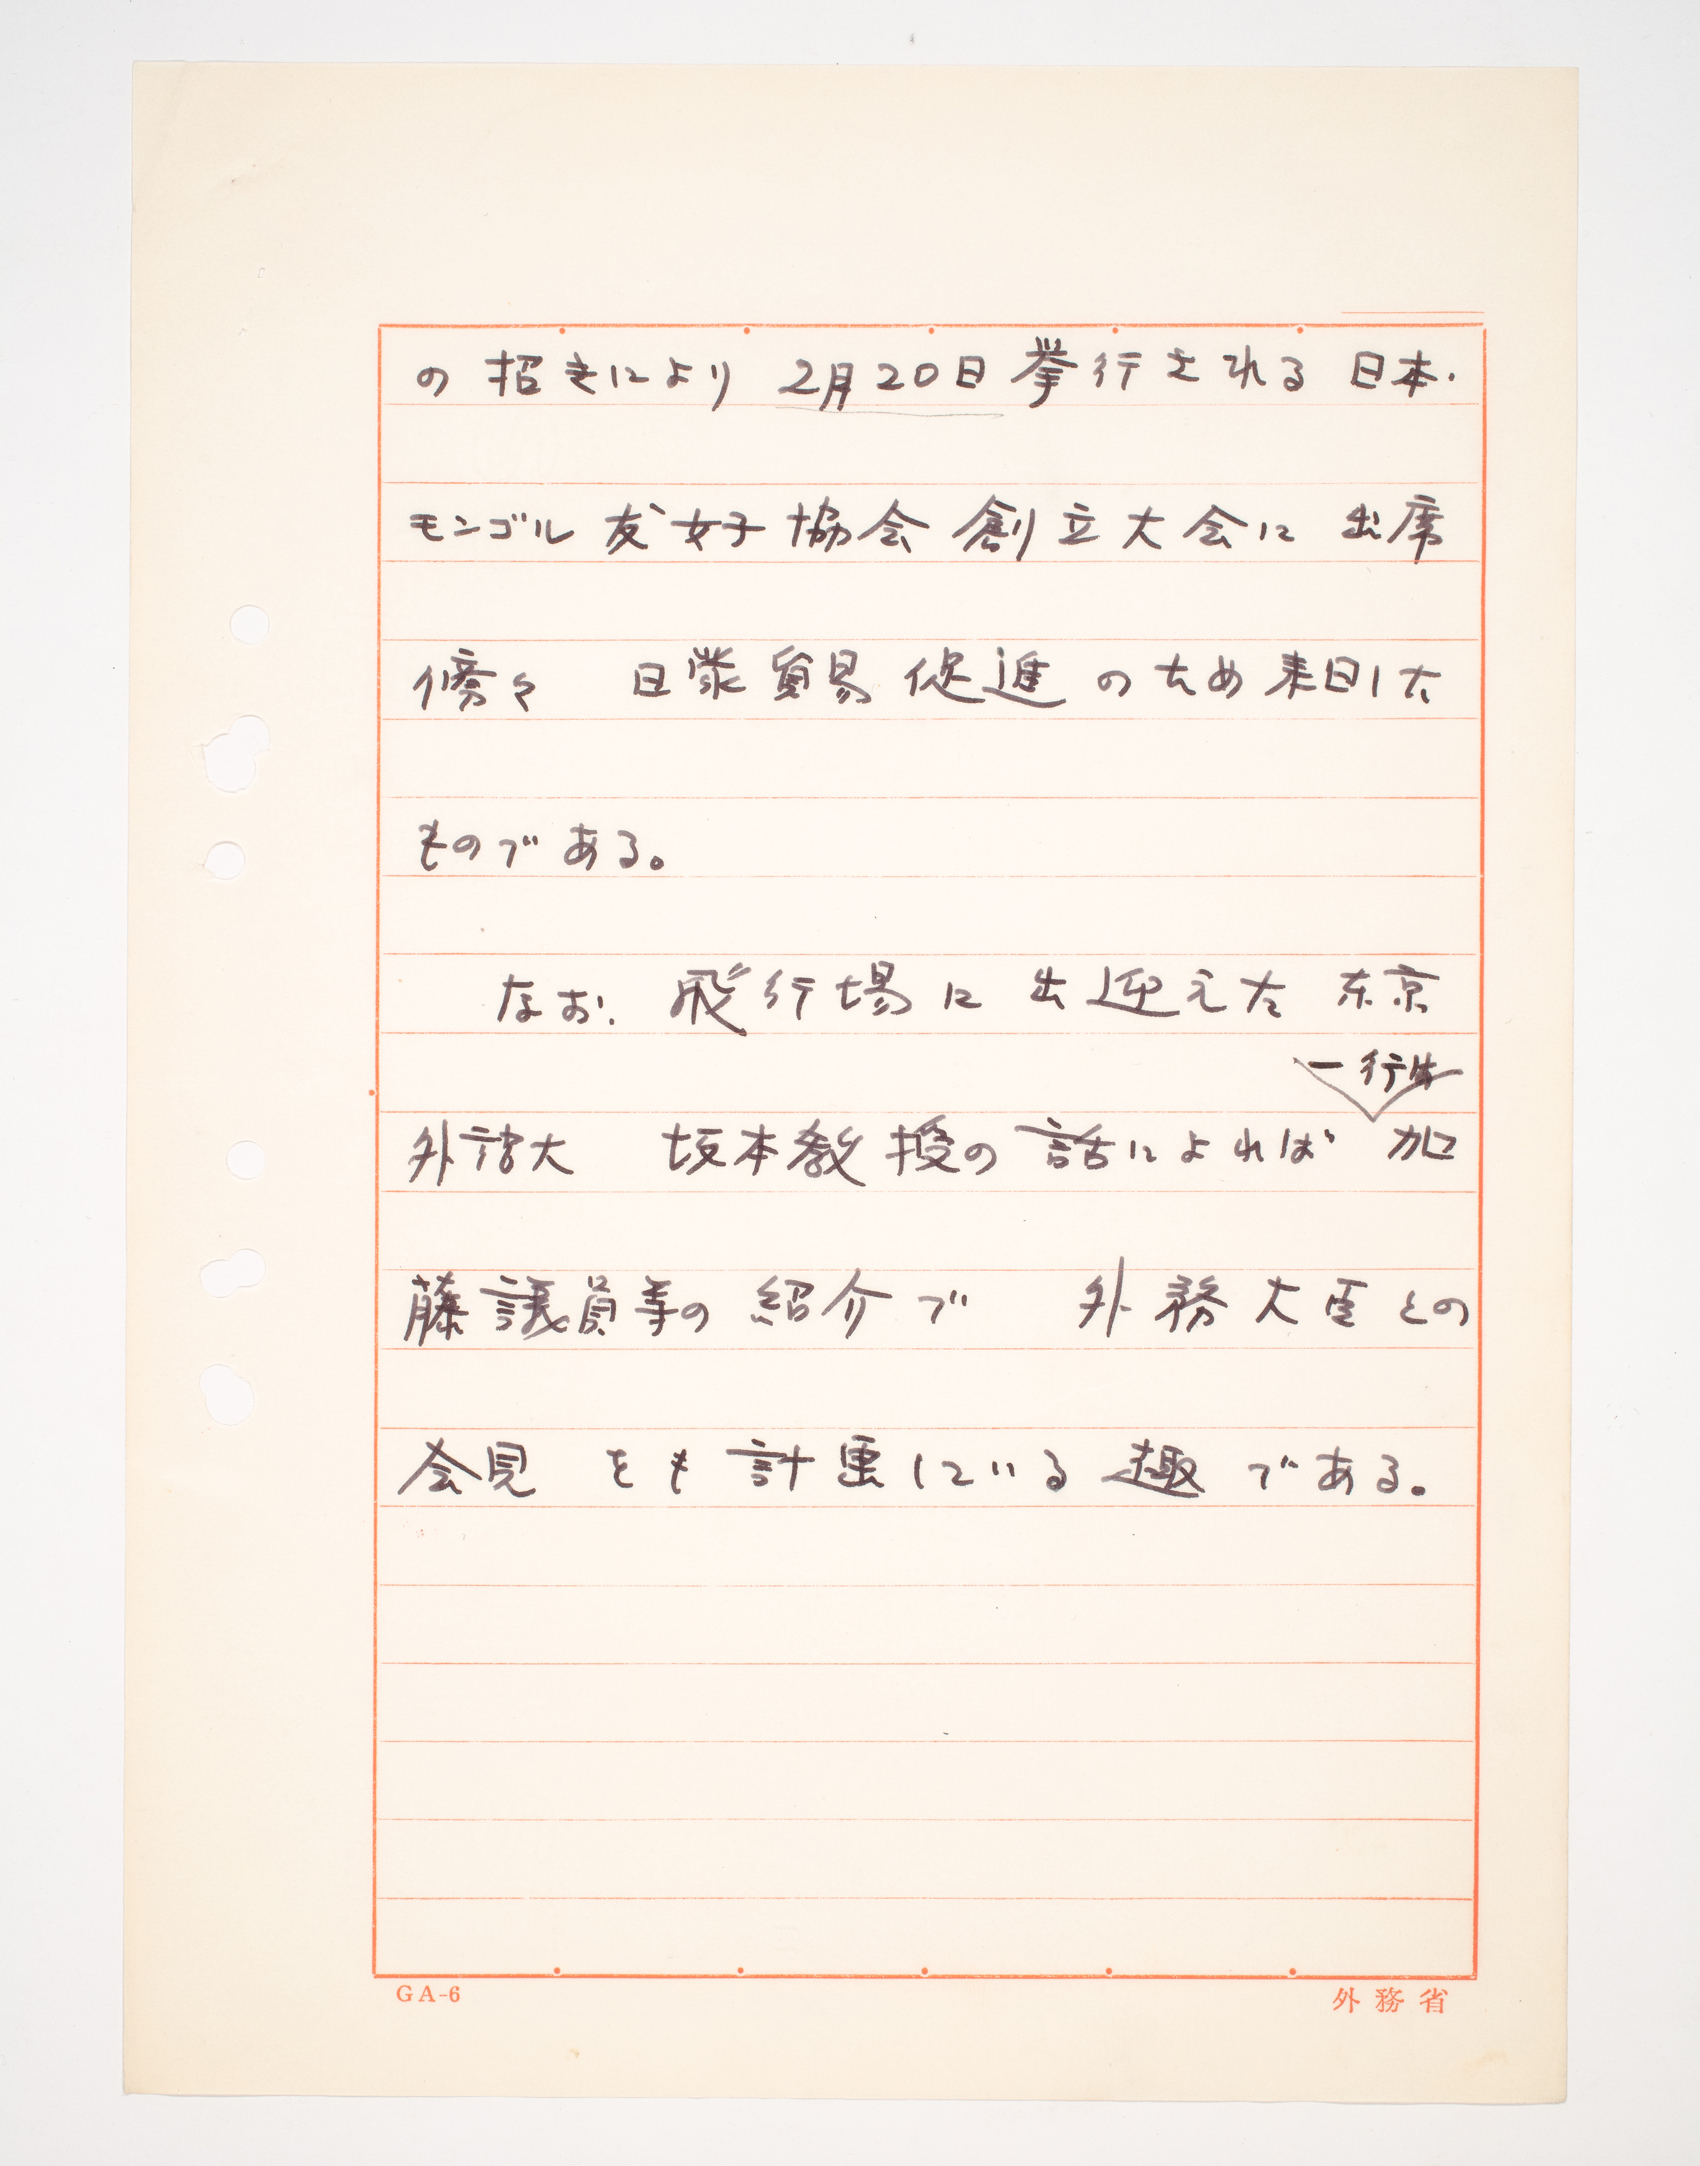 の招きにより 2月20日挙行される日本・
モンゴル友好協会創立大会に出席
傍々 日蒙貿易促進のため来日した
ものである。
なお、飛行場に出迎えた東京
一行は
外語大 坂本教授の話によれば 加
藤議員等の紹介で 外務大臣との
会見をも計画している趣である。
GA-6
外務省